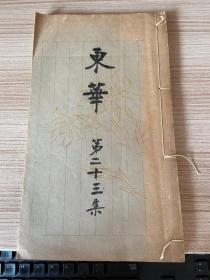 東華
第二十三集